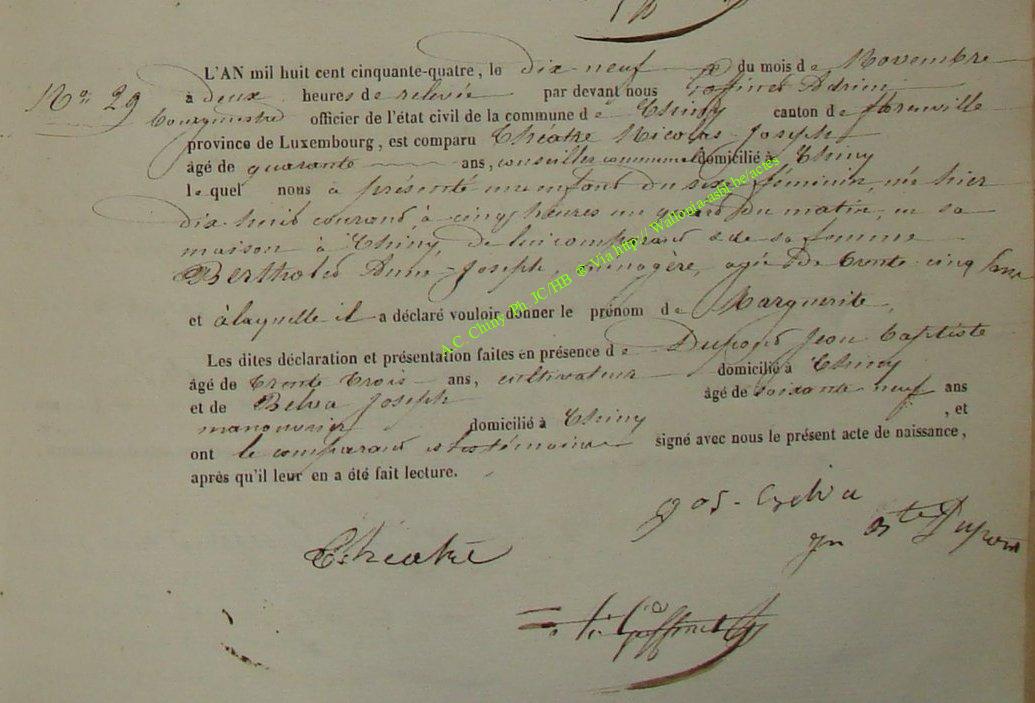 L'AN mil huit cent cinquante-quatre, le dix neuf du mois de Novembre
No 29
à deux heures de relevée par devant nous Goffinet Adrien
bourgmestre officier de l'état civil de la commune de Chiny canton de florenville
province de Luxembourg, est comparu Théatre Nicolas Joseph
âgé de quarante ans, conseiller communal domicilié à Chiny
lequel nous à présenté un enfant du sexe féminin, née hier
dix huit courant à cinq heures un quart du matin, en sa
maison à Chiny, de lui comparant & de sa femme
Bertholet Anne-Joseph, ménagère, agée de trente cinq ans
et à laquelle il a déclaré vouloir donner le prénom de Marguerite,
Les dites déclaration et présentation faites en présence de Dupont Jean Baptiste
âgé de trente trois ans, cultivateur domicilié à Chiny
et de Belva Joseph âgé de soixante neuf ans
manouvrier domicilié à Chiny, et
ont le comparant & les témoins signé avec nous le présent acte de naissance,
après qu'il leur en a été fait lecture.
jos-
Théatre
jn Bte Dupont
Goffinet
A.C. Chiny Ph. JC/HB ® Via http:// Wallonia-asbl.be/actes